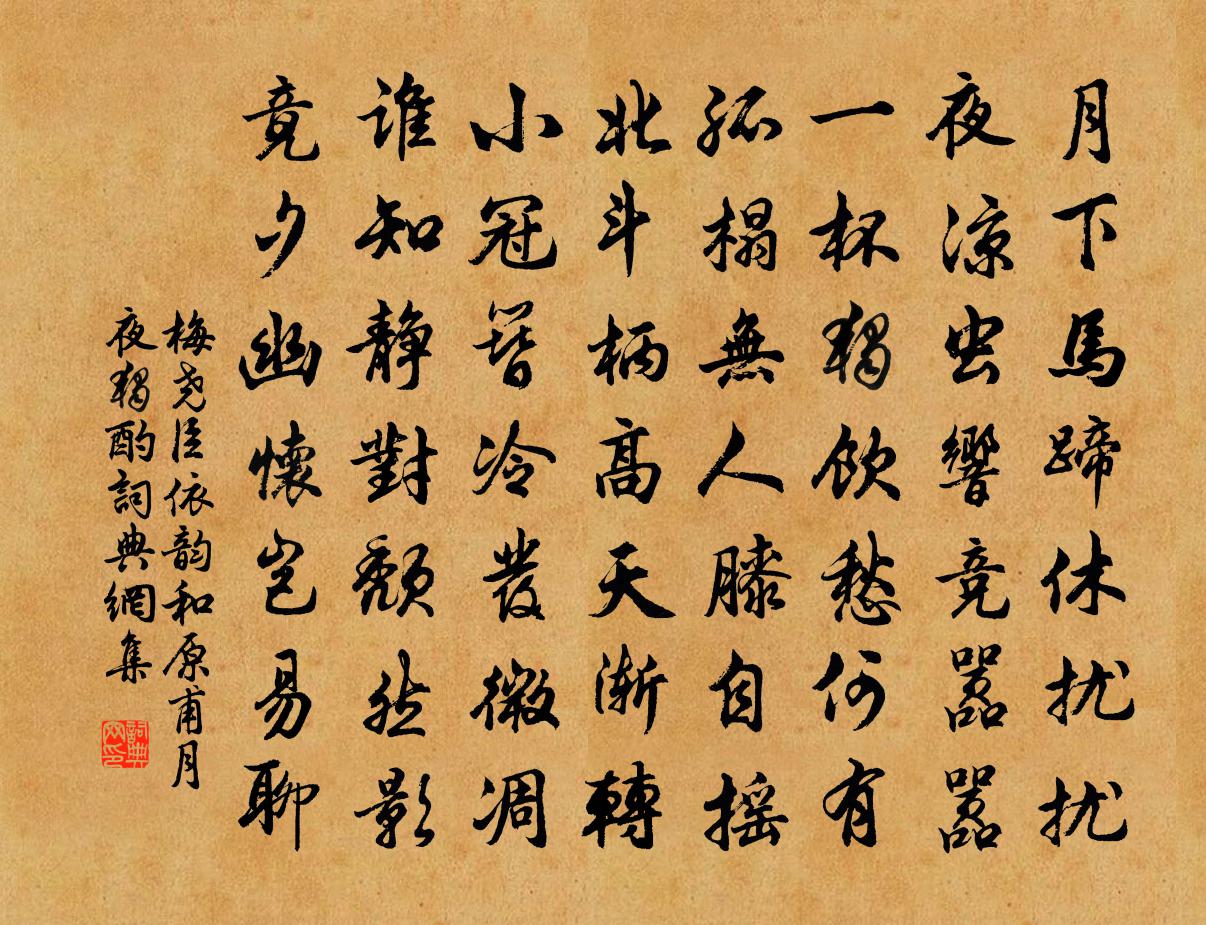 月下馬蹄休扰扰
夜凉虫響竞嚣嚣
一杯獨飲愁何有
孤榻無人膝自摇
北斗柄高天渐轉
小冠簪冷發微凋
谁知靜對颓然影
竟夕幽懷岂易聊
梅尧臣依韵和原甫月
夜獨酌詞典網集
詞典
网印